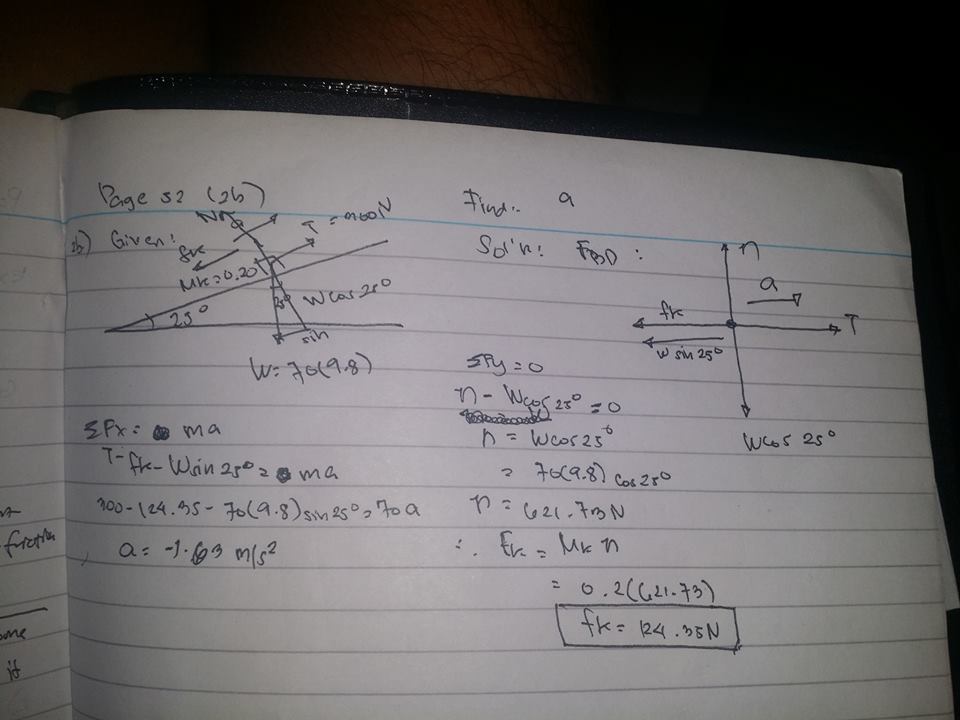 Page 52 (2b)
2b) Given:
N
a
T = 300N
fk
Mk = 0.20
25°
25°
Wcos 25°
sin
W = 70(9.8)
ΣFx = ma
T - fk - Wsin 25° = ma
300 - 124.35 - 70(9.8) sin 25° = 70a
a = -1.63 m/s²
Find: a
Sol'n: FBD:
n
a
fk
T
W sin 25°
Wcos 25°
ΣFy = 0
n - Wcos 25° = 0
n = Wcos 25°
= 70(9.8) cos 25°
n = 621.73N
∴ Fk = Mk n
= 0.2(621.73)
fk = 124.35N
friction
ome
it